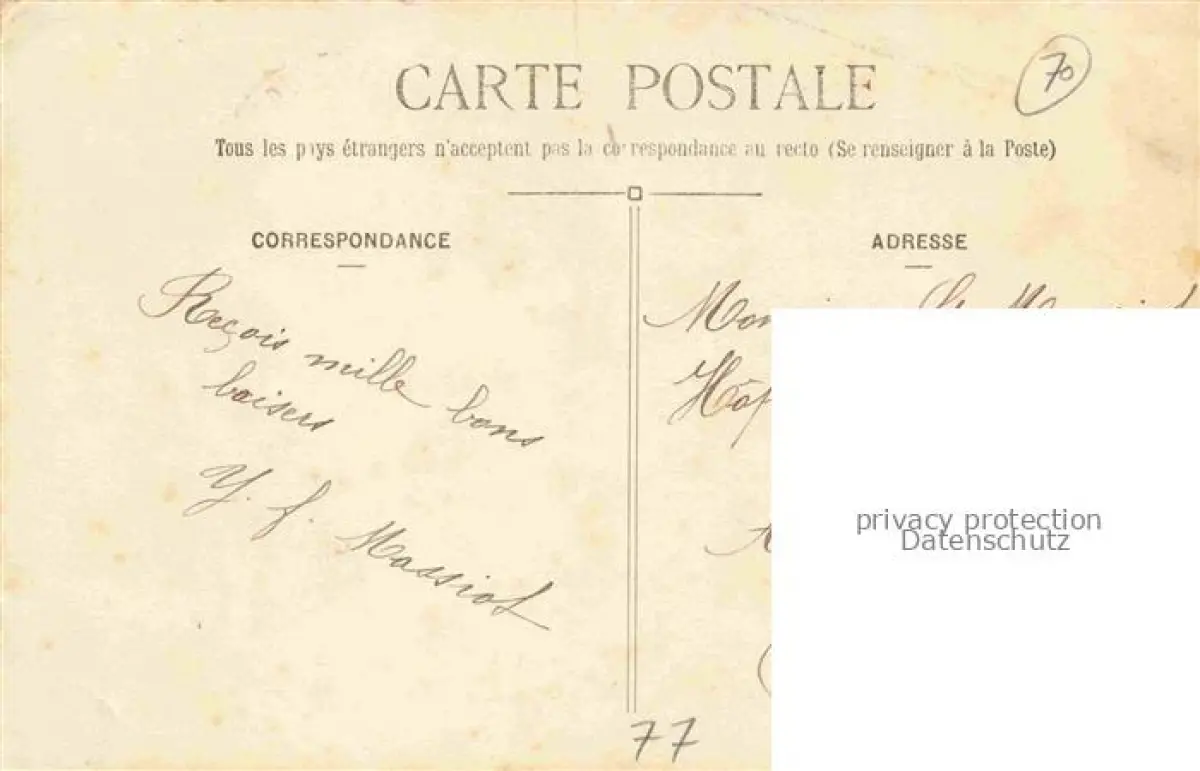 CARTE POSTALE
70
Tous les pays étrangers n'acceptent pas la correspondance au recto (Se renseigner à la Poste)
CORRESPONDANCE
ADRESSE
Reçois mille bons
baisers
Y. f. Massiot
privacy protection
Datenschutz
77